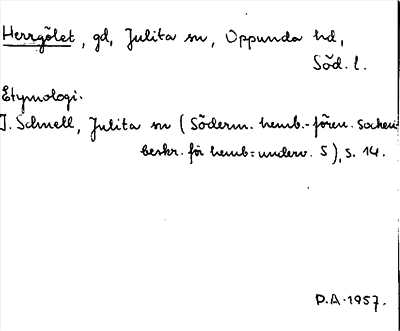 Herrgölet, gd, Julita sn, Oppunda hd,
Söd. l.
Etymologi.
I. Schnell, Julita sn (Söderm. hemb.-fören. socken
beskr. för hemb=underv. 5), s. 14.
D.A. 1957.